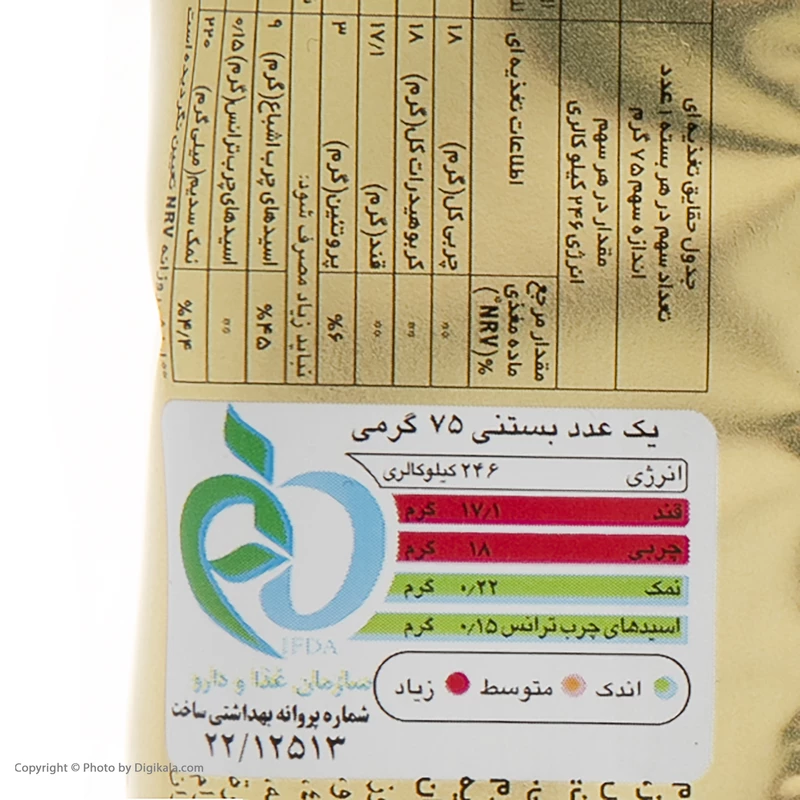 جدول حقایق تغذیه ای
تعداد سهم در هر بسته ۱ عدد
اندازه سهم ۷۵ گرم
مقدار در هر سهم
انرژی ۲۴۶ کیلو کالری
اطلاعات تغذیه ای
مقدار مرجع
ماده مغذی
(NRV*)%
چربی کل (گرم) ۱۸ **
کربوهیدرات کل (گرم) ۱۸ **
قند (گرم) ۱۷/۱ **
پروتئین (گرم) ۳ %۶
نباید زیاد مصرف شود:
اسیدهای چرب اشباع (گرم) ۹ %۴۵
اسیدهای چرب ترانس (گرم) ۰/۱۵ **
نمک سدیم (میلی گرم) ۲۲۰ %۴/۴
NRV تعیین نگردیده است
یک عدد بستنی ۷۵ گرمی
انرژی ۲۴۶ کیلوکالری
قند ۱۷/۱ گرم
چربی ۱۸ گرم
نمک ۰/۲۲ گرم
اسیدهای چرب ترانس ۰/۱۵ گرم
اندک متوسط زیاد
IFDA
سازمان غذا و دارو
شماره پروانه بهداشتی ساخت
۲۲/۱۲۵۱۳
Copyright © Photo by Digikala.com